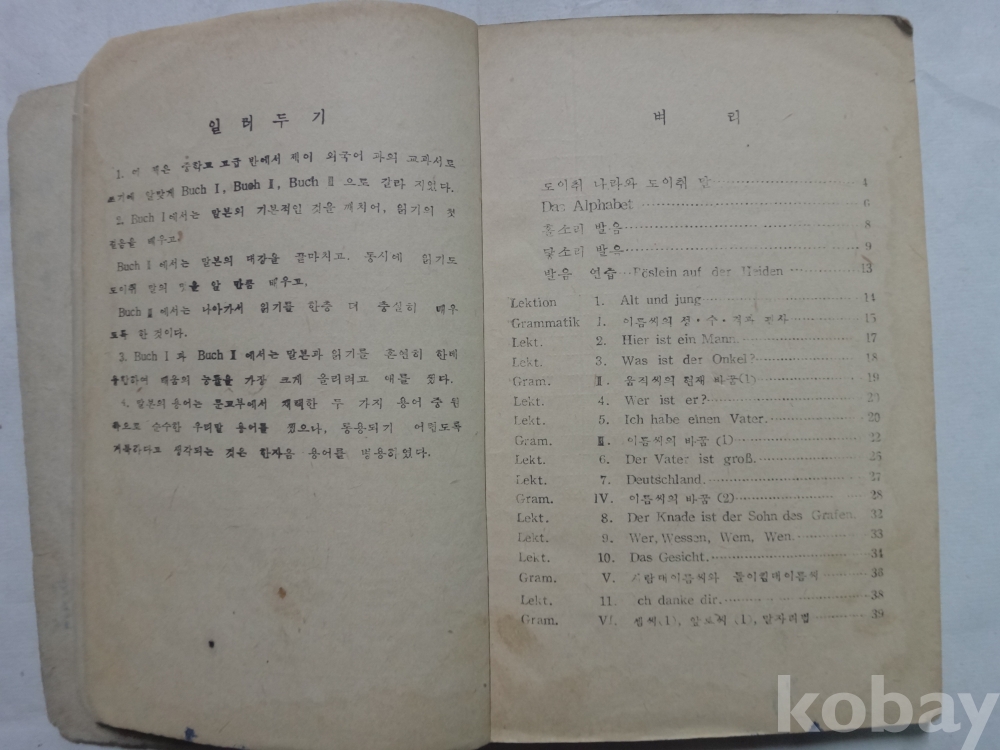 일 러 두 기
1. 이 책은 중학교 고급 반에서 제이 외국어 과의 교과서로
쓰기에 알맞게 Buch I, Buch II, Buch III 으로 갈라 지었다.
2. Buch I 에서는 말본의 기본적인 것을 깨치어, 읽기의 첫
걸음을 배우고
Buch II 에서는 말본의 대강을 끝마치고. 동시에 읽기도
도이취 말의 을 알 만큼 배우고,
Buch III 에서는 나아가서 읽기를 한층 더 충실히 배우
도록 한 것이다.
3. Buch I 과 Buch II 에서는 말본과 읽기를 혼연히 한데
융합하여 배움의 능률을 가장 크게 올리려고 애를 썼다.
4. 말본의 용어는 문교부에서 채택한 두 가지 용어 중 원
측으로 순수한 우리말 용어를 썼으나, 통용되기 어렵도록
거북하다고 생각되는 것은 한자음 용어를 병용하였다.
벼 리
도이취 나라와 도이취 말 4
Das Alphabet 6
홀소리 발음 8
닿소리 발음 9
발음 연습 Röslein auf der Heiden 13
Lektion 1. Alt und jung 14
Grammatik I. 이름씨의 성·수·격과 관사 15
Lekt. 2. Hier ist ein Mann. 17
Lekt. 3. Was ist der Onkel? 18
Gram. II. 움직씨의 현재 바꿈(1) 19
Lekt. 4. Wer ist er? 20
Lekt. 5. Ich habe einen Vater. 20
Gram. III. 이름씨의 바꿈 (1) 22
Lekt. 6. Der Vater ist groß. 25
Lekt. 7. Deutschland. 27
Gram. IV. 이름씨의 바꿈 (2) 28
Lekt. 8. Der Knade ist der Sohn des Grafen. 32
Lekt. 9. Wer, Wessen, Wem, Wen. 33
Lekt. 10. Das Gesicht. 34
Gram. V. 사람대이름씨와 돌이킴대이름씨 36
Lekt. 11. ch danke dir. 38
Gram. VI. 셈씨(1), 앞토씨 (1), 말자리법 39
kobay